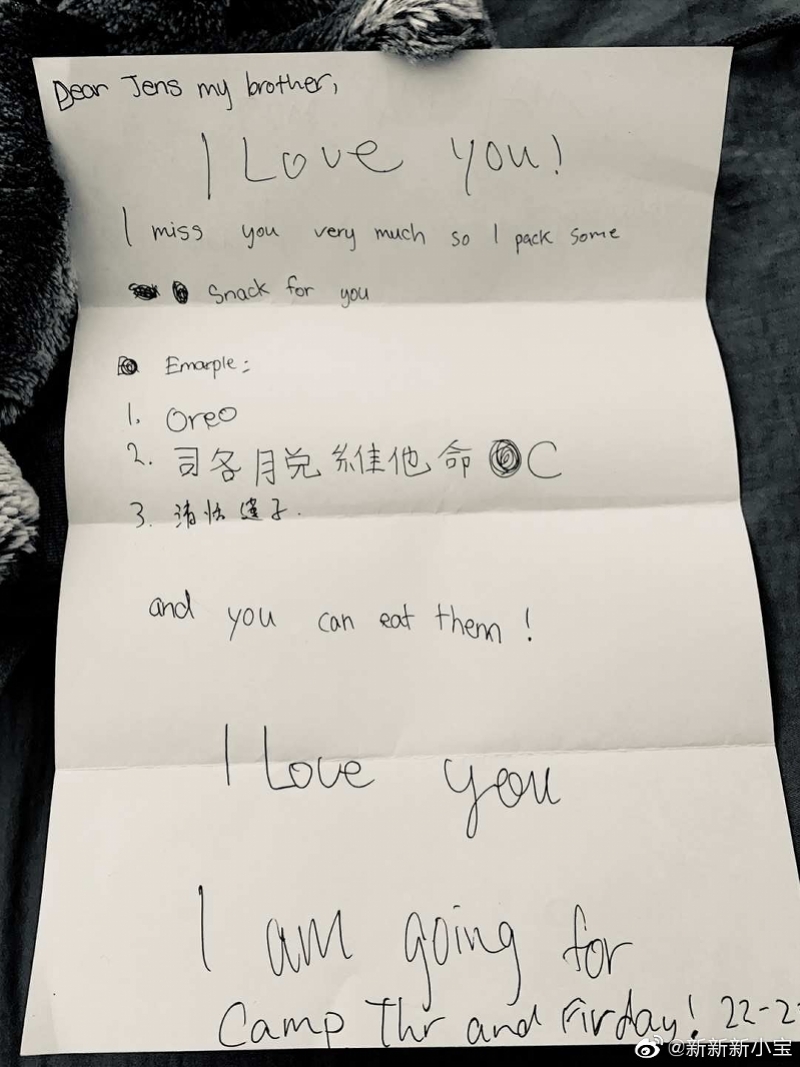 Dear Jens my brother,
I Love you!
I miss you very much so I pack some
Snack for you
Emarple:
1. Oreo
2. 司各月兑維他命 C
3.
and you can eat them!
I Love you
I am going for
Camp Thr and Firday! 22-2
@新新新小宝